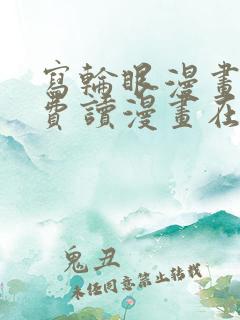 寫輪眼漫畫
費讀漫畫在
鬼丑
未經同意禁止轉載